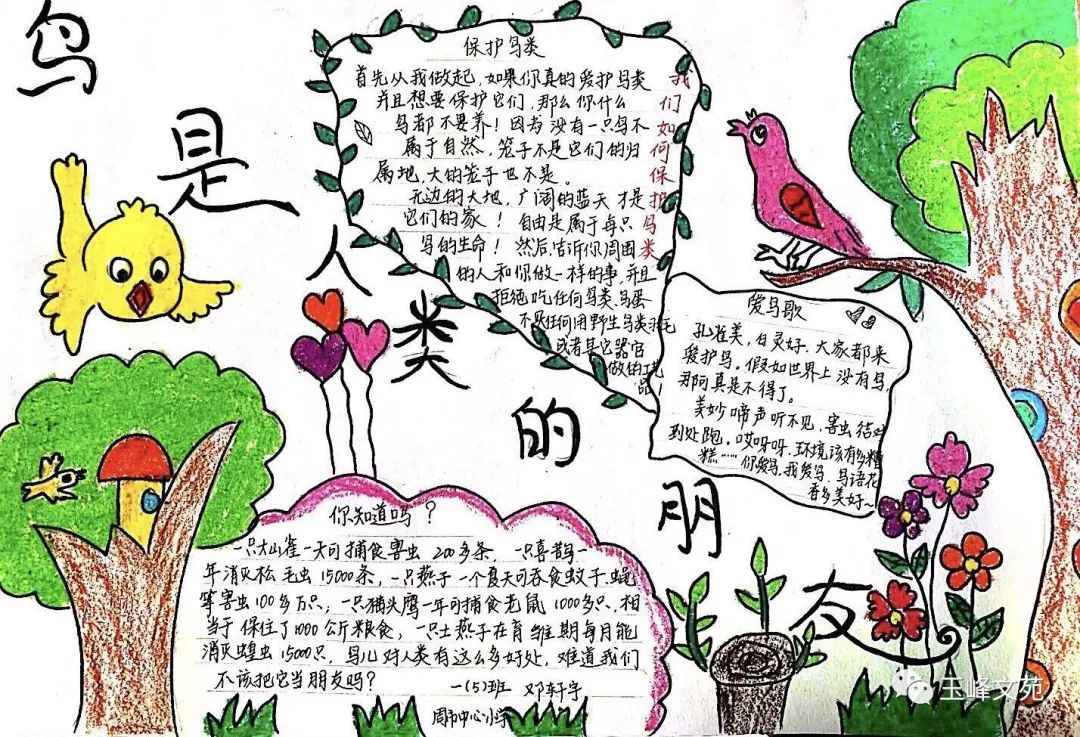 鸟是人类的朋友
保护鸟类
首先从我做起,如果你真的爱护鸟类
并且想要保护它们,那么你什么
鸟都不要养!因为没有一只鸟不
属于自然,笼子不是它们的归
属地,大的笼子也不是。
无边的大地,广阔的蓝天才是
它们的家!自由是属于每只
鸟的生命!然后,告诉你周围
的人和你做一样的事,并且
拒绝吃任何鸟类,鸟蛋
不买任何用野生鸟类羽毛
或者其它器官
做的工艺
品!
我们如何保护鸟类
爱鸟歌
孔雀美,百灵好,大家都来
爱护鸟。假如世界上没有鸟,
那可真是不得了。
美妙啼声听不见,害虫结对
到处跑。哎呀呀,环境该有多糟
糕……你爱鸟,我爱鸟,鸟语花
香多美好~
你知道吗?
一只大山雀一天可捕食害虫200多条,一只喜鹊一
年消灭松毛虫15000条,一只燕子一个夏天可吞食蚊子、蝇
等害虫100多万只;一只猫头鹰一年可捕食老鼠1000多只,相
当于保住了1000公斤粮食,一只土燕子在育雏期每月能
消灭蝗虫15000只,鸟儿对人类有这么多好处,难道我们
不该把它当朋友吗?
一(5)班 邓轩宇
周市中心小学
玉峰文苑